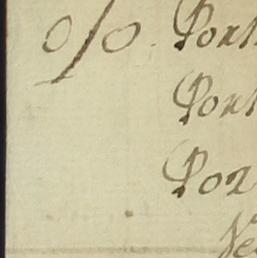 o/o. Port
Port
Por
Ve